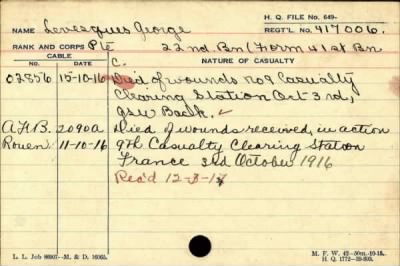 H. Q. FILE NO. 649-
NAME Levesques George REGT'L. NO. 417006.
RANK AND CORPS Pte 22nd Bn (Form 41st Bn
CABLE NATURE OF CASUALTY
NO. DATE C.
02856 15-10-16 Died of wounds no 9 Casualty
Clearing Station Oct 3rd,
gsw Back.
A.F.B. 2090a Died of wounds received in action
Rouen 11-10-16 9th Casualty Clearing Station
France 3rd October 1916
Rec'd 12-3-17
L. L. Job 86907-M. & D. 16065. M. F. W. 42-50m.-10-18.
H. Q. 1772-39-893.